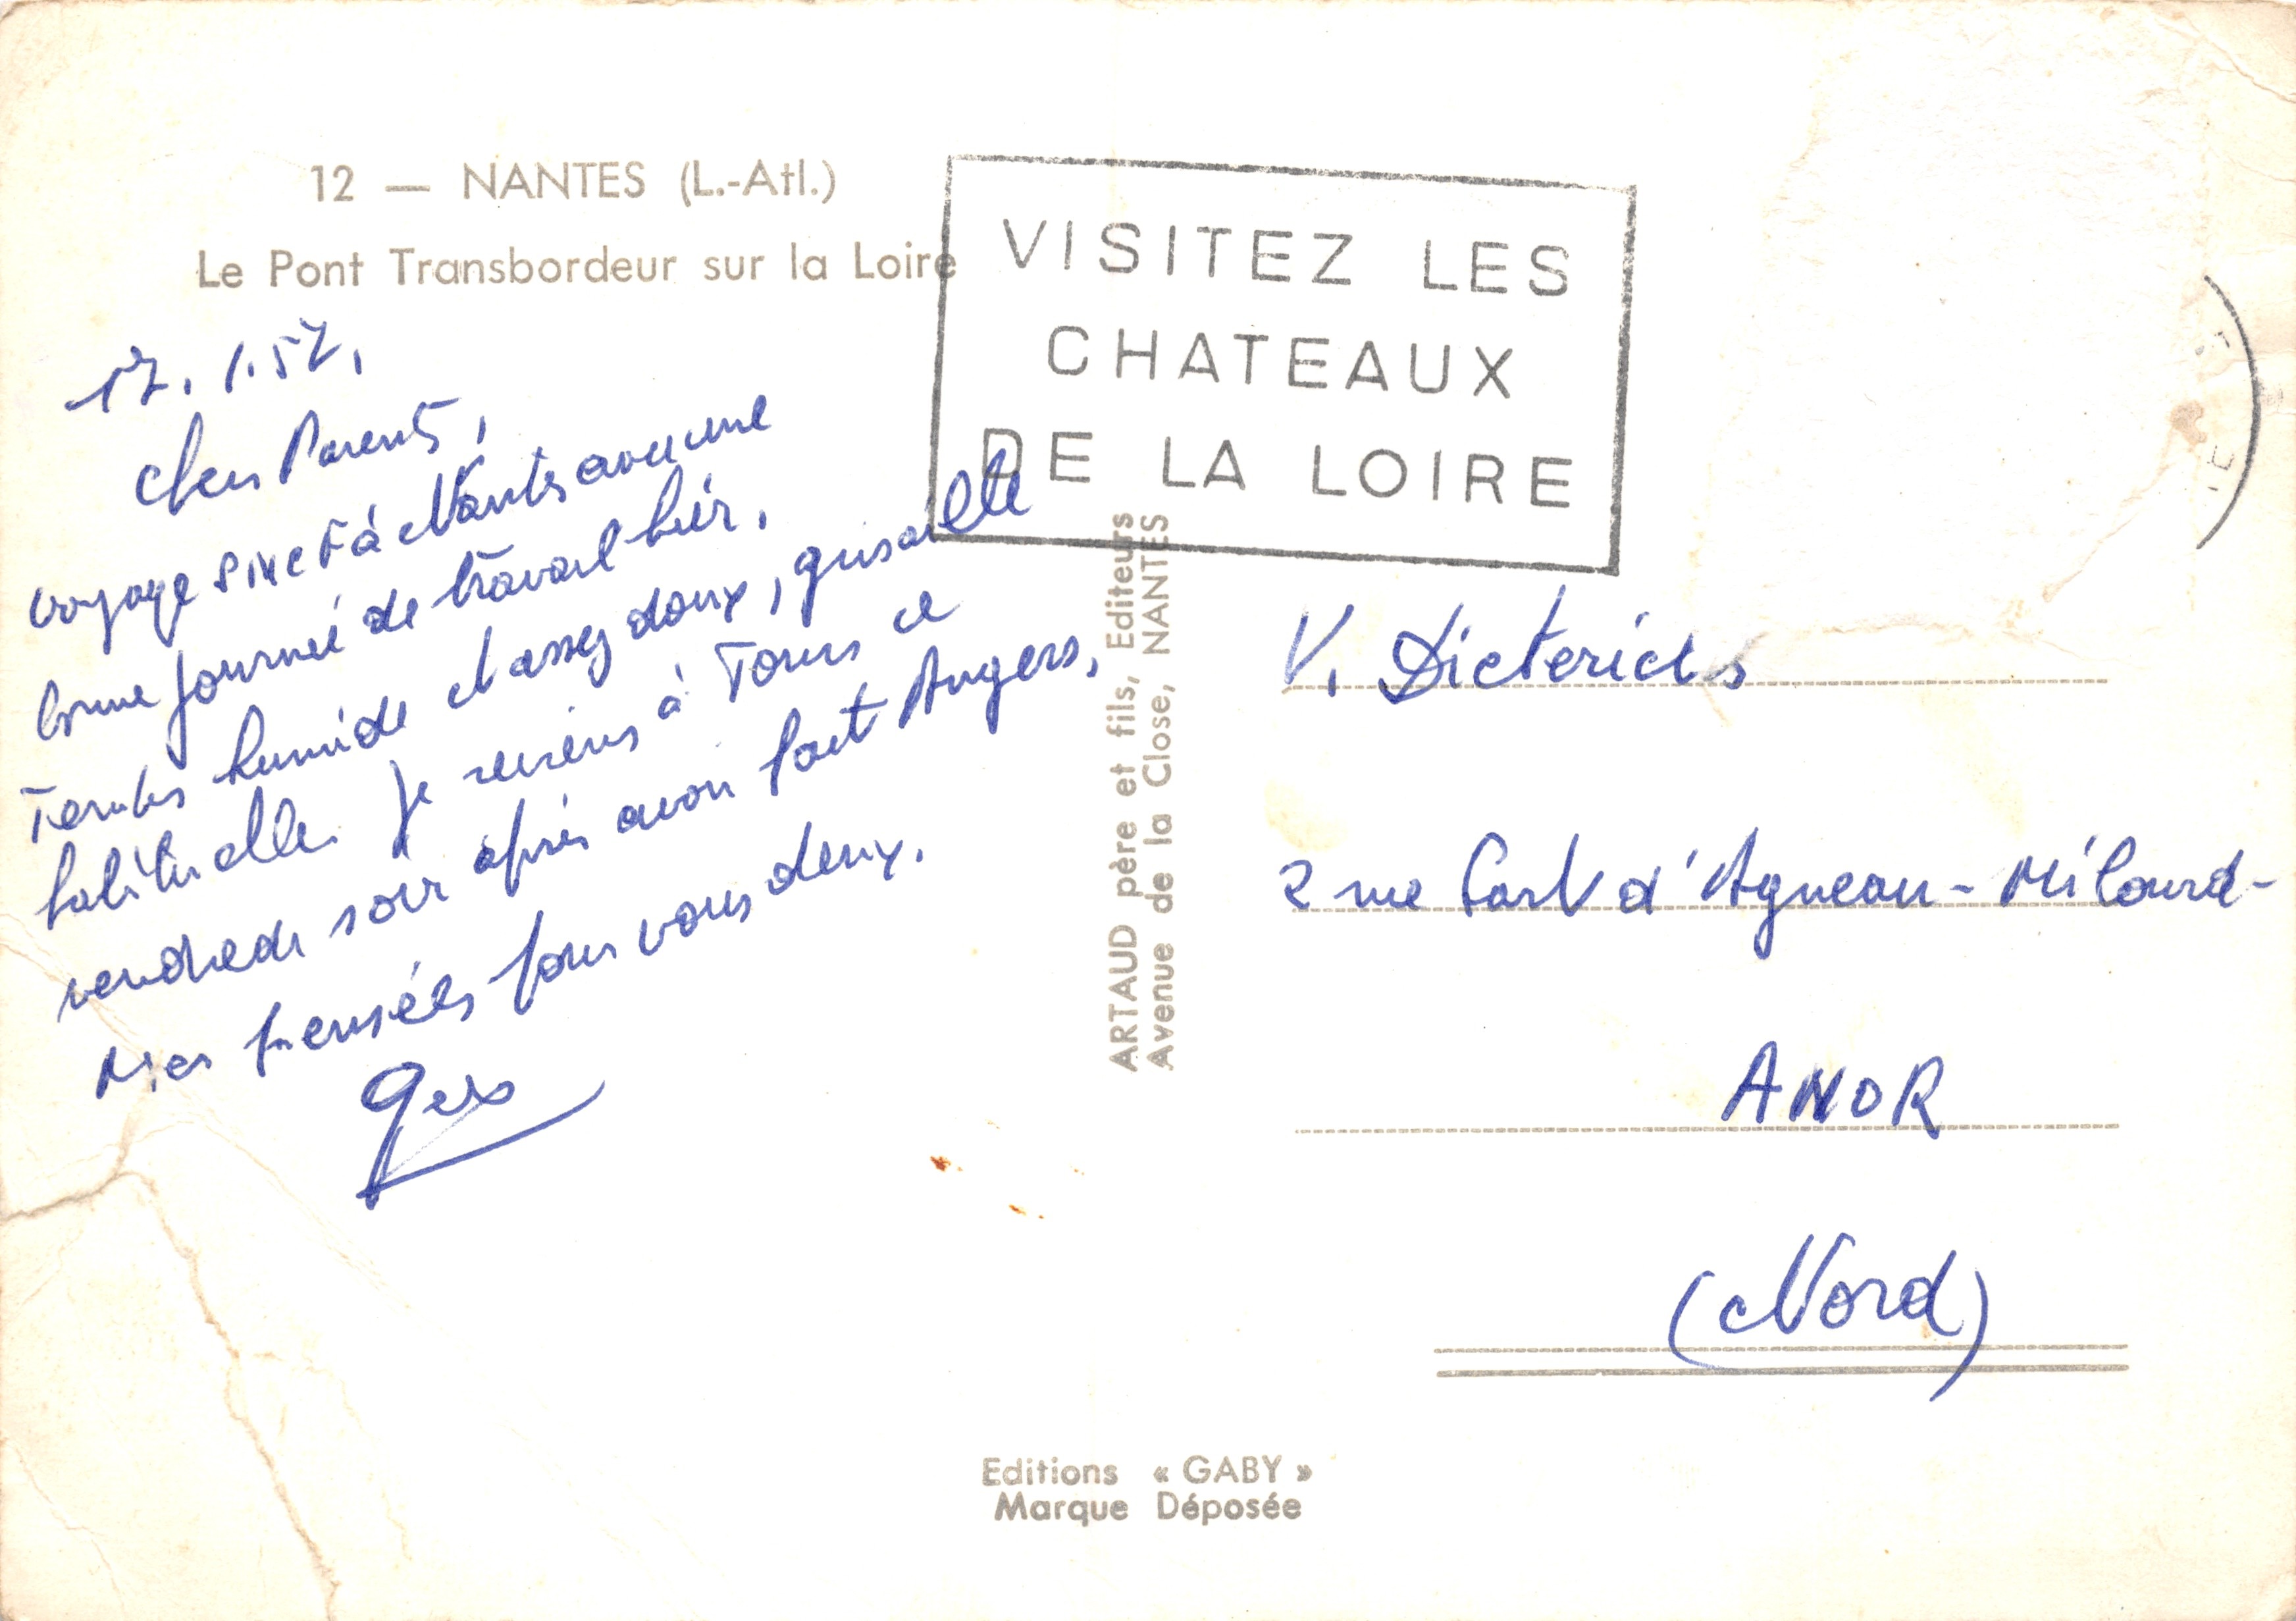 12 — NANTES (L.-Atl.)
Le Pont Transbordeur sur la Loire
VISITEZ LES
CHATEAUX
DE LA LOIRE
17.1.57.
Chers Parents,
voyage direct à Nantes avec une
bonne journée de travail hier.
Temps humide et assez doux, grisaille
habituelle. Je reviens à Tours ce
vendredi soir après avoir fait Angers.
Mes pensées pour vous deux.
ARTAUD père et fils, Editeurs
Avenue de la Close, NANTES
V. Dieterichs
2 rue d'Agneau-Milourd-
ANOR
(Nord)
Editions « GABY »
Marque Déposée